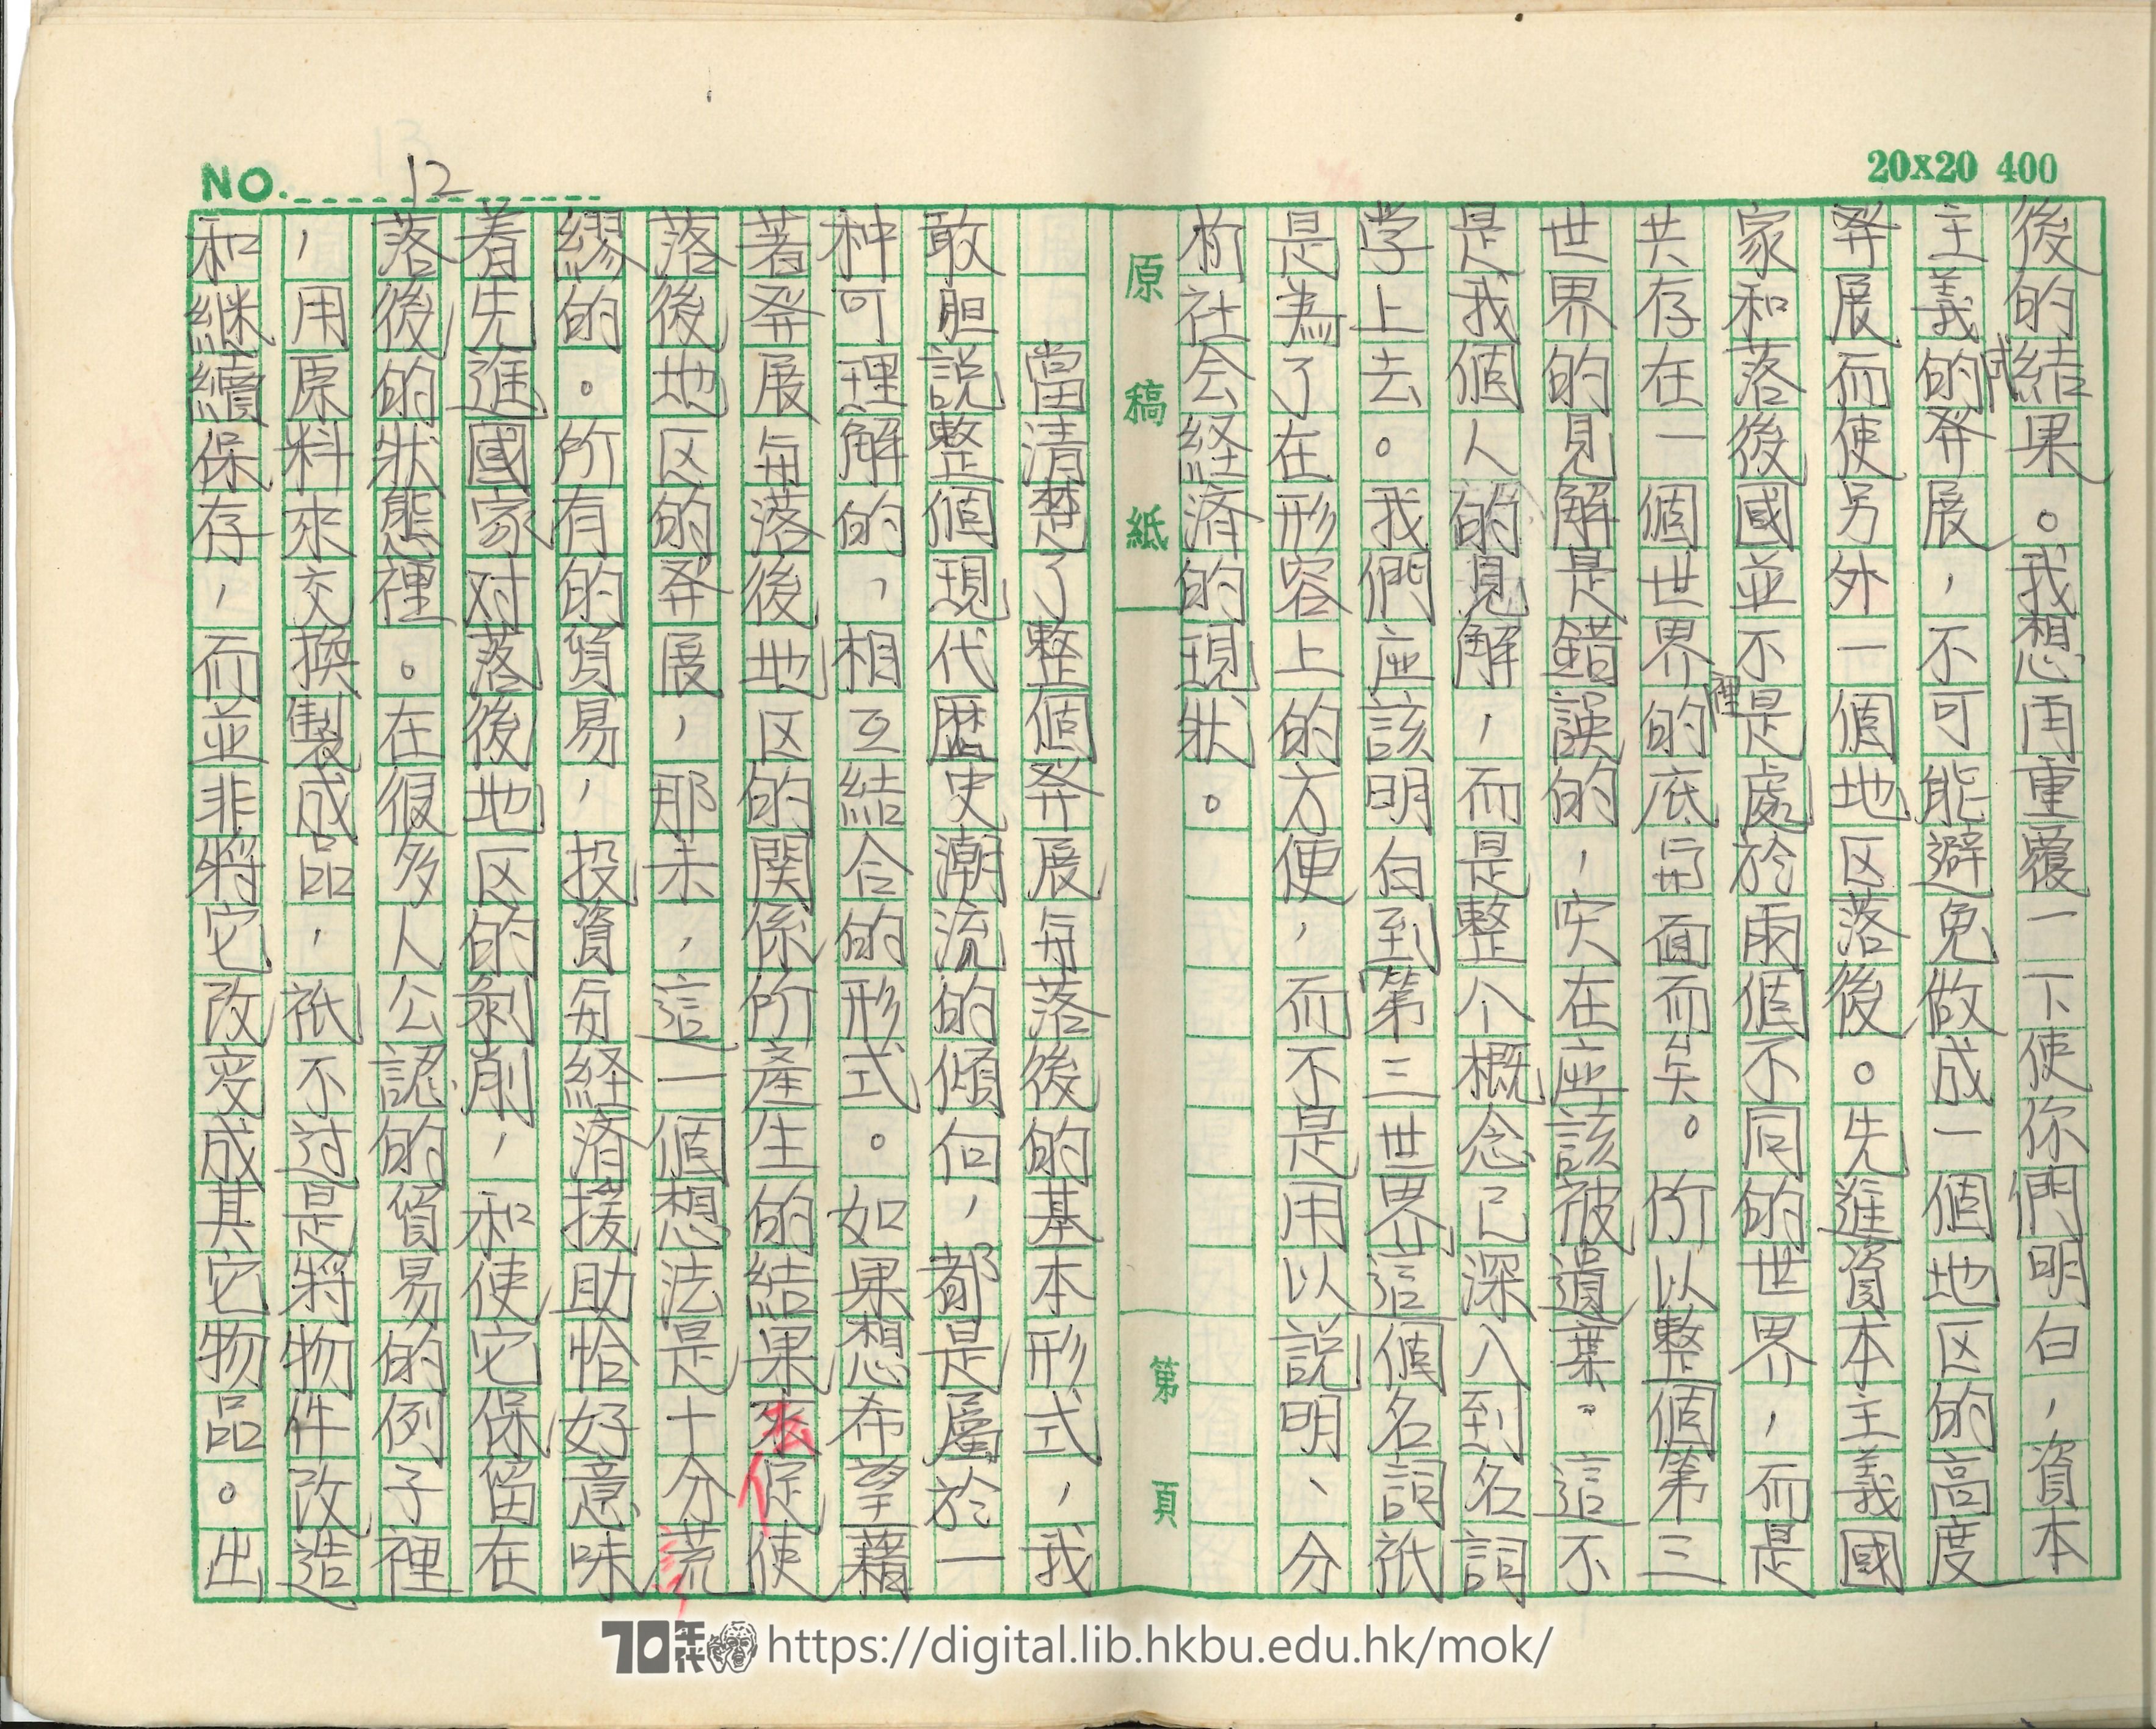 20x20 400
NO. 12
後的成結果。我想再重覆一下使你們明白，資本
主義的發展，不可能避免做成一個地区的高度
發展而使另外一個地区落後。先進資本主義國
家和落後國並不是處於兩個不同的世界，而是
共存在一個世界裡的底兩面而矣。所以整個第三
世界的見解是錯誤的，实在应該被遺棄。這不
是我個人的見解，而是整个概念已深入到名詞
学上去。我們应該明白到「第三世界這個名詞祇
是為了在形容上的方便，而不是用以説明、分
析社会経済的現狀。
原稿紙
第頁
當清楚了整個發展與落後的基本形式，我
敢胆説整個現代歴史潮流的傾向，都是屬於一
种可理解的，相互結合的形式。如果想希望藉
著發展與落後地区的関係所產生的結果來促使
落後地区的發展，那末，這一個想法是十分荒
繆的。所有的貿易，投資與経済援助恰好意味
着先進國家对落後地区的剝削，和使它保留在
落後的狀態裡。在很多人公認的貿易的例子裡
，用原料來交換製成品，祇不过是將物件改造
和継續保存，而並非將它改变成其它物品。出
70年代 https://digital.lib.hkbu.edu.hk/mok/